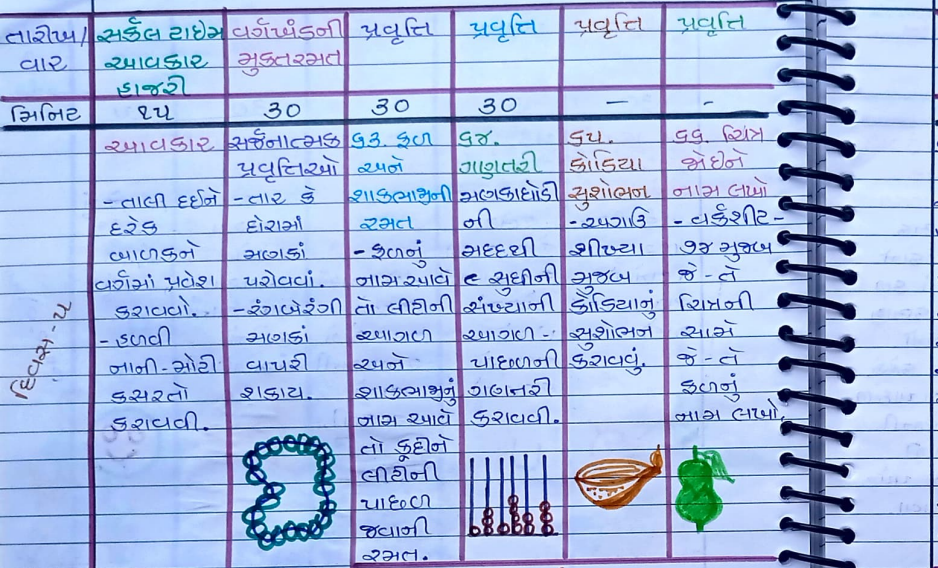 તારીખ/
વાર
સર્કલ ટાઇમ
આવકાર
હાજરી
વર્ગખંડની
મુક્તરમત
પ્રવૃત્તિ
પ્રવૃત્તિ
પ્રવૃત્તિ
પ્રવૃત્તિ
મિનિટ
૧૫
30
30
30
—
-
દિવસ-૫
આવકાર
- તાલી દઈને
દરેક
બાળકને
વર્ગમાં પ્રવેશ
કરાવવો.
- હળવી
નાની-મોટી
કસરતો
કરાવવી.
સર્જનાત્મક
પ્રવૃત્તિઓ
- તાર કે
દોરામાં
મણકાં
પરોવવાં.
- રંગબેરંગી
મણકાં
વાપરી
શકાય.
૬૩. ફળ
અને
શાકભાજીની
રમત
- ફળનું
નામ આવે
તો લીટીની
આગળ
અને
શાકભાજીનું
નામ આવે
તો કૂદીને
લીટીની
પાછળ
જવાની
રમત.
૬૪.
ગણતરી
મણકાઘોડી
ની
મદદથી
૯ સુધીની
સંખ્યાની
આગળ-
પાછળની
ગણતરી
કરાવવી.
૬૫.
કોડિયા
સુશોભન
- અગાઉ
શીખ્યા
મુજબ
કોડિયાનું
સુશોભન
કરાવવું.
૬૬. ચિત્ર
જોઈને
નામ લખો
- વર્કશીટ-
૭૪ મુજબ
જે-તે
ચિત્રની
સામે
જે-તે
ફળનું
નામ લખો.